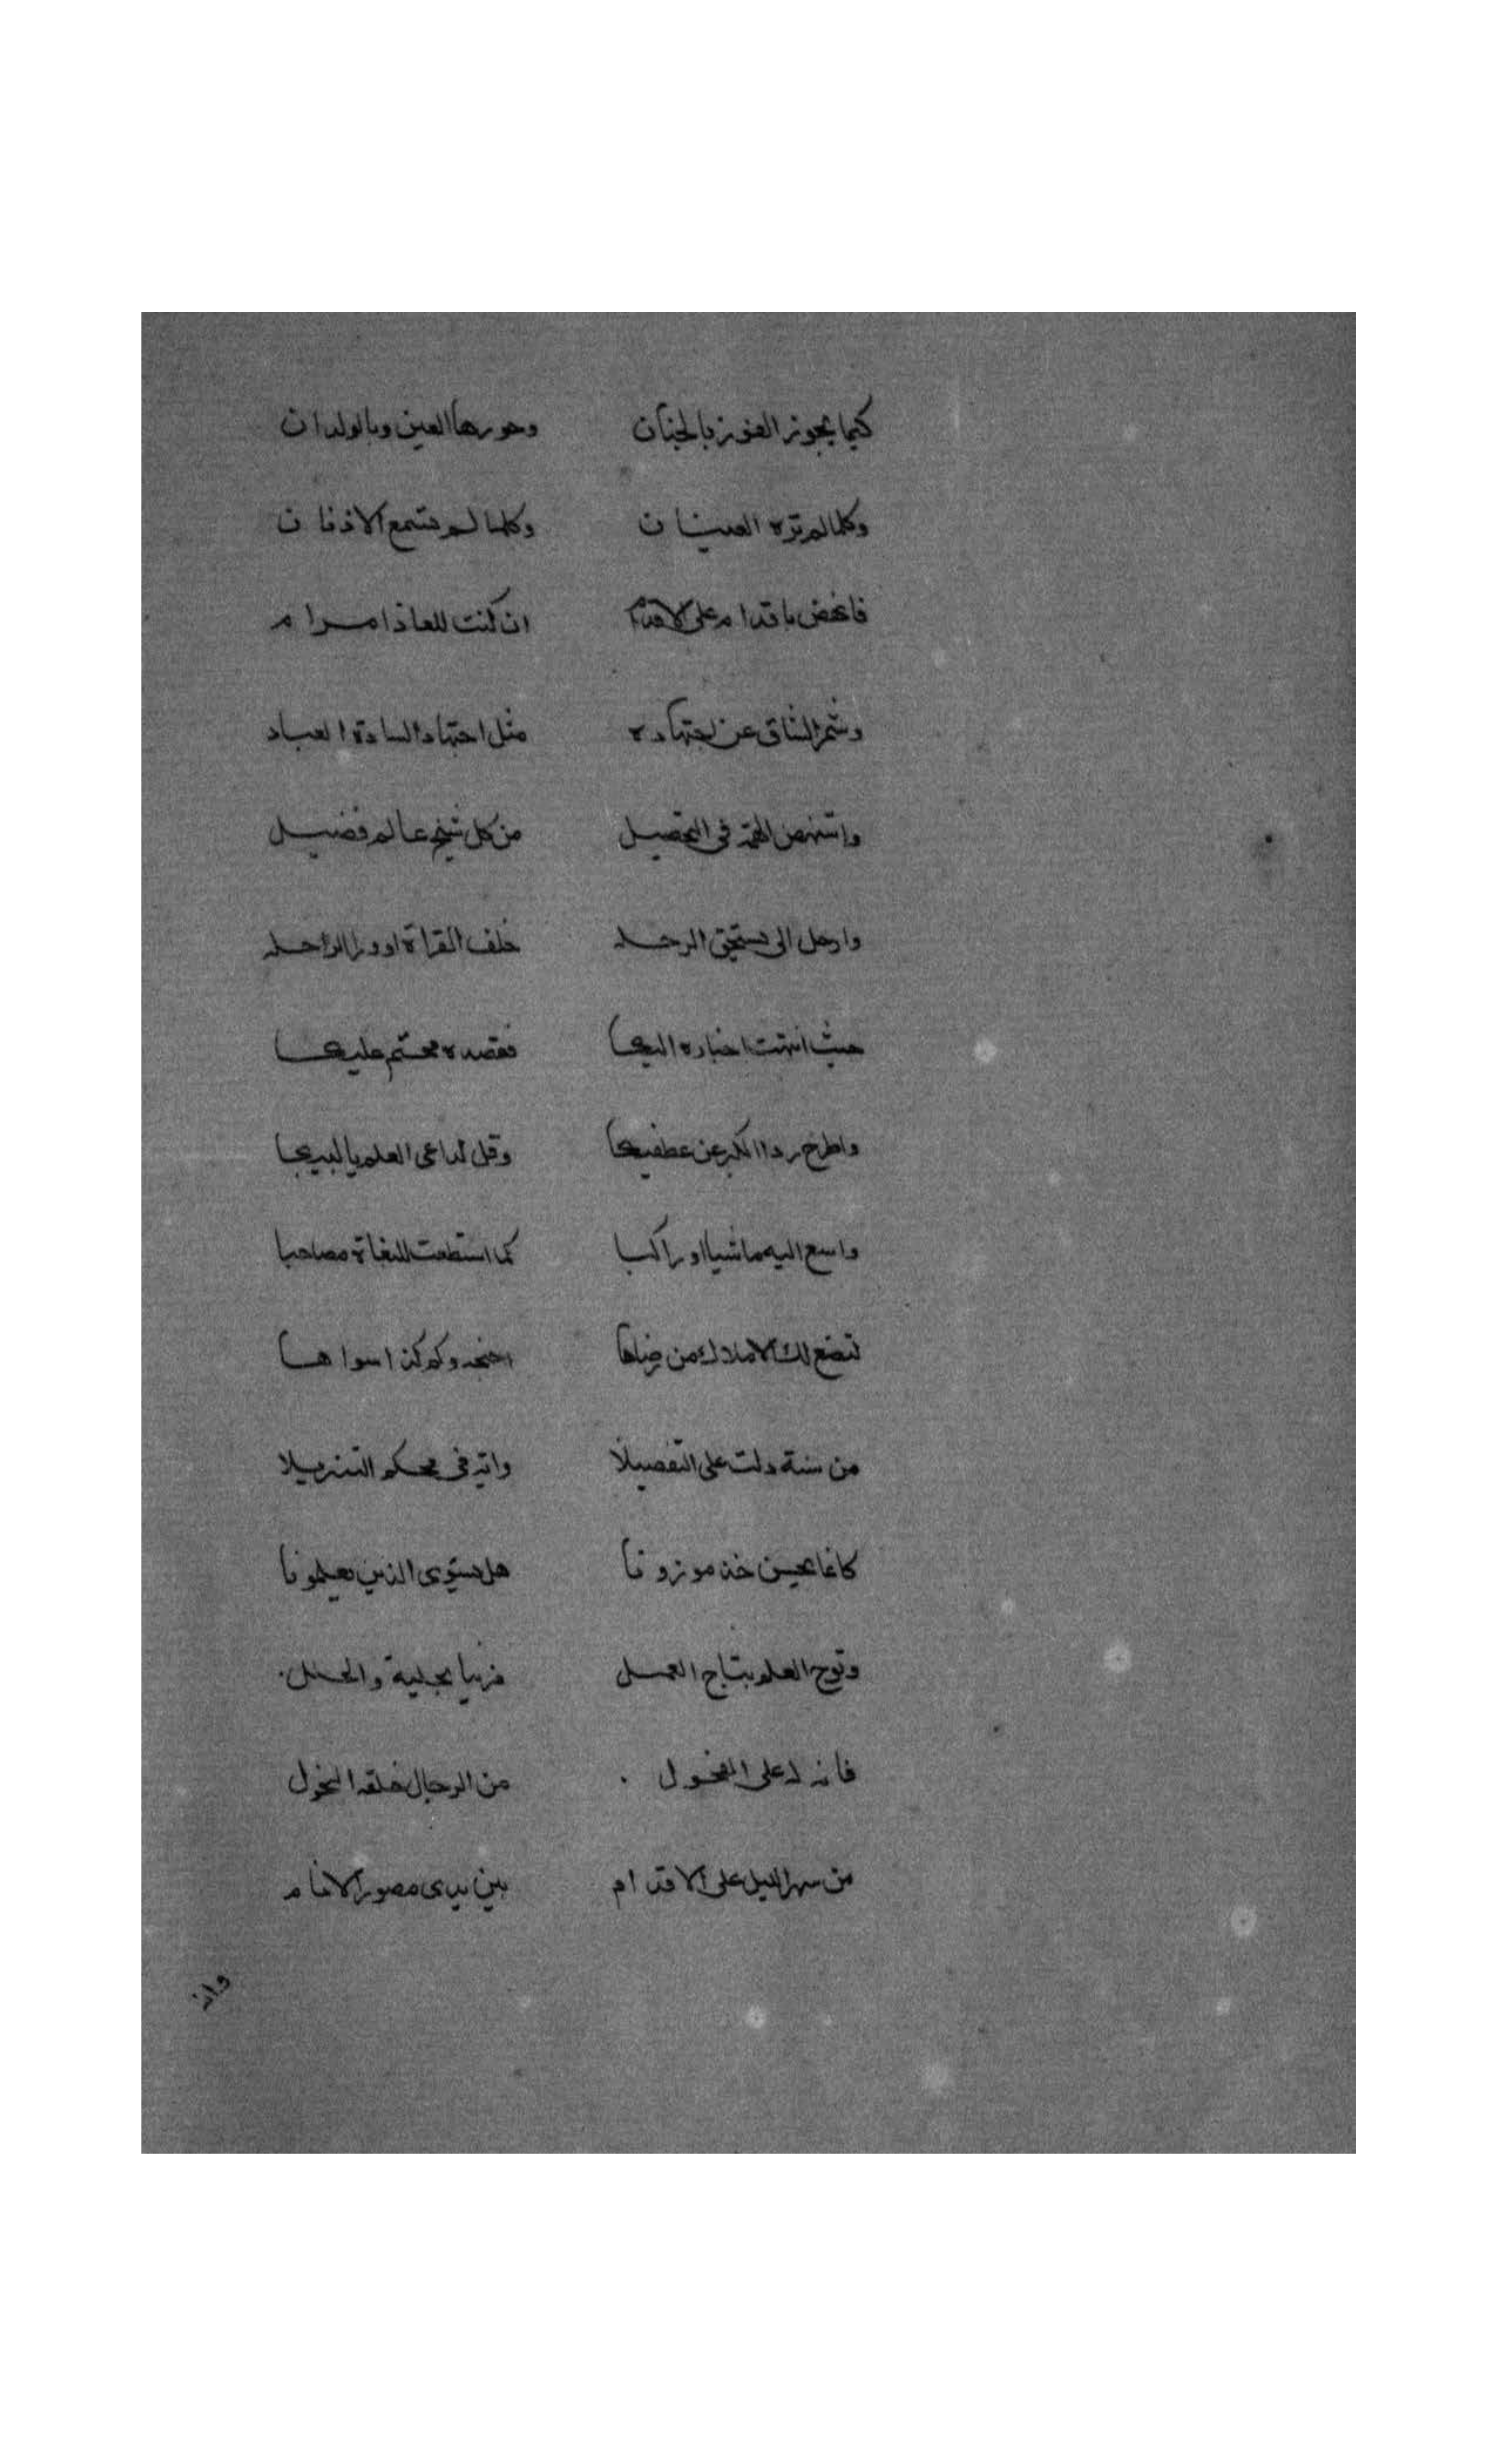 كيما يجوز الفوز بالجنان وحورها العين وبالولدان
وكلما لم تره العينان وكلما لم تسمع الاذنان
فانهض باقدام على الاقدام ان كنت للعاذا مرام
وشمر الساق عن اجتهاده مثل اجتهاد السادة العباد
واستنهض الهمة في التحصيل من كل شيخ عالم فضيل
وارحل الى مستحق الرحله خلف القراة او و الراحله
حيث انتهت اخباره اليها فقصده محتم عليها
واطرح ردا الكبر عن عطفيها وقل لداعي العلم يا لبيها
واسع اليه ماشيا او راكبا كما استطعت للنقاة مصاحبا
تضع لك الاملاك من رضاها اجنحه وكم كذا سواها
من سنة دلت على التفصيلا واية في محكم التنزيلا
كافا بحسن خذ موزونا هل يستوي الذين يعلمونا
وتوج العلم بتاج العمل مزينا بحلية والحلل
فانه لدعلى الفحول من الرجال خلقه النحول
من سهر الليل على الاقدام بين يدي مصور الانام
وان